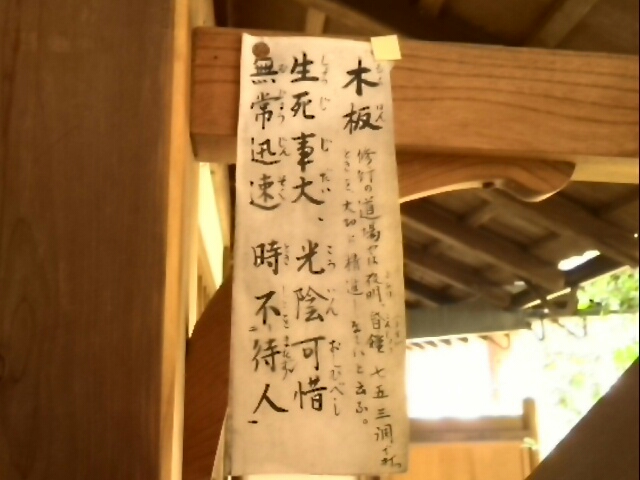 木板
修行の道場では夜明、昏鐘 七五三調
ときを大切に精進しなさいと云ふ。
生死事大、光陰可惜
無常迅速 時不待人